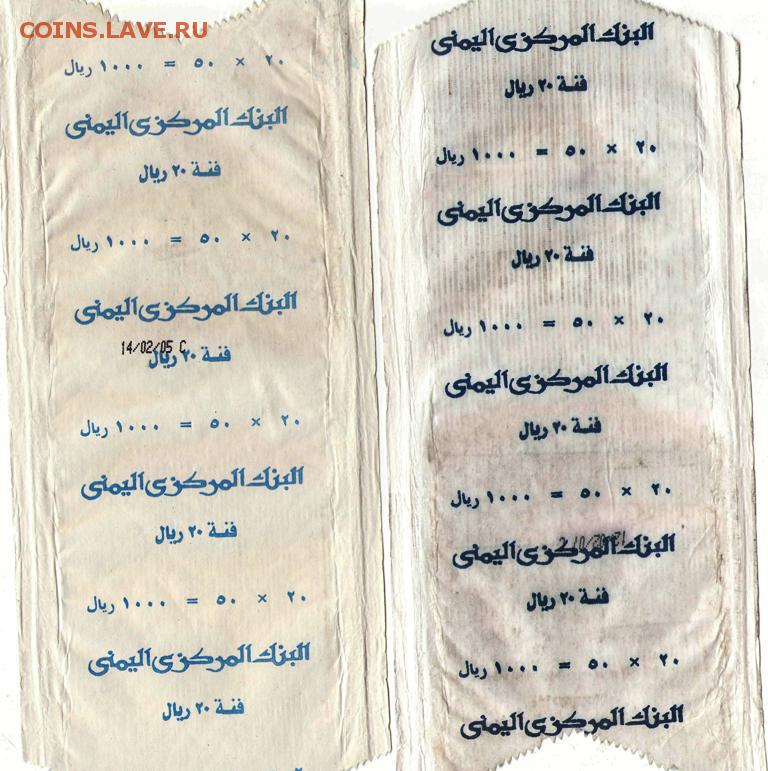 COINS.LAVE.RU
٢٠ × ٥٠ = ١٠٠٠ ريال
البنك المركزي اليمني
فئة ٢٠ ريال
٢٠ × ٥٠ = ١٠٠٠ ريال
البنك المركزي اليمني
14/02/05 C
فئة ٢٠ ريال
٢٠ × ٥٠ = ١٠٠٠ ريال
البنك المركزي اليمني
فئة ٢٠ ريال
٢٠ × ٥٠ = ١٠٠٠ ريال
البنك المركزي اليمني
فئة ٢٠ ريال
البنك المركزي اليمني
فئة ٢٠ ريال
٢٠ × ٥٠ = ١٠٠٠ ريال
البنك المركزي اليمني
فئة ٢٠ ريال
٢٠ × ٥٠ = ١٠٠٠ ريال
البنك المركزي اليمني
فئة ٢٠ ريال
٢٠ × ٥٠ = ١٠٠٠ ريال
البنك المركزي اليمني
فئة ٢٠ ريال
٢٠ × ٥٠ = ١٠٠٠ ريال
البنك المركزي اليمني